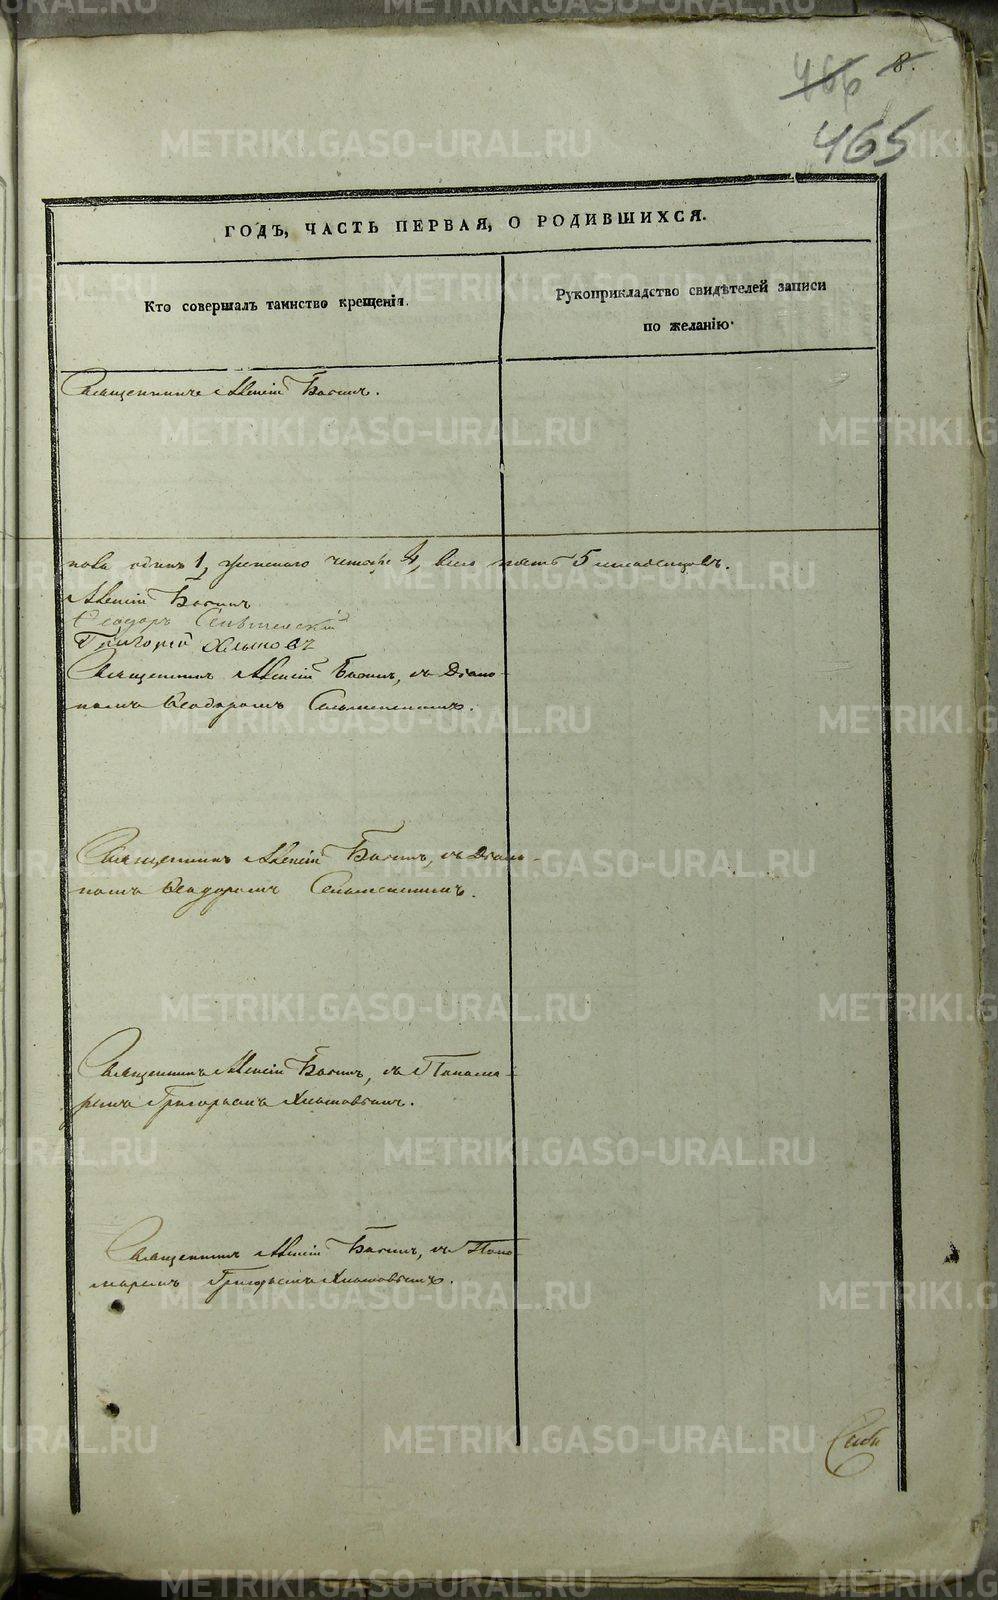 466 8.
465
ГОДЪ, ЧАСТЬ ПЕРВАЯ, О РОДИВШИХСЯ.
Кто совершалъ таинство крещенія.
Рукоприкладство свидѣтелей записи
по желанію.
Священникъ Алексій
пола одинъ 1, женскаго четыре 4, всего пять 5 младенцовъ.
Алексій
Ѳеодоръ
Григорій
Священникъ Алексій съ Діако-
номъ Ѳеодоромъ
Священникъ Алексій съ Діако-
номъ Ѳеодоромъ
Священникъ Алексій съ Понома-
ремъ Григорьемъ
Священникъ Алексій съ Поно-
маремъ Григорьемъ
METRIKI.GASO-URAL.RU